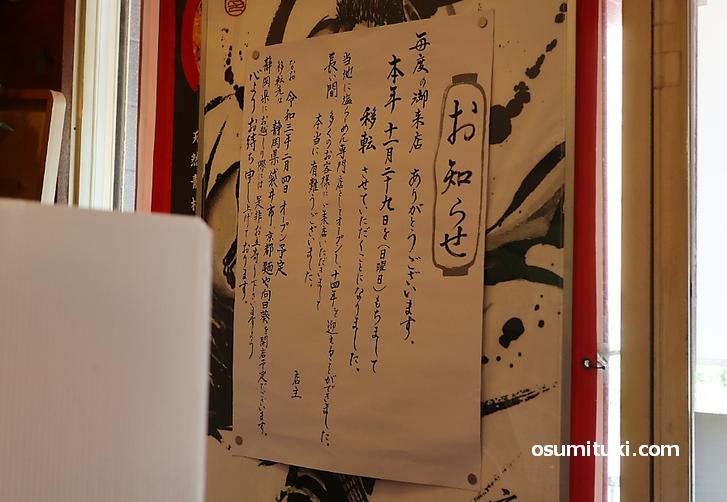 お知らせ
毎度の御来店 ありがとうございます。
本年 十一月二十九日を(日曜日)もちまして
移転 させていただくことになりました。
当地に塩らーめん専門店としてオープンし、十四年を迎えることができました。
長い間 多くのお客様にご来店いただきまして
本当に有難うございました。
なお 令和三年二月四日 オープン予定
移転先は 静岡県袋井市 京都麺や向日葵を開店予定でございます。
静岡県にお越しの際には 是非お立寄り下さいますよう
心よりお待ち申し上げております。
店主
天然青
osumituki.com